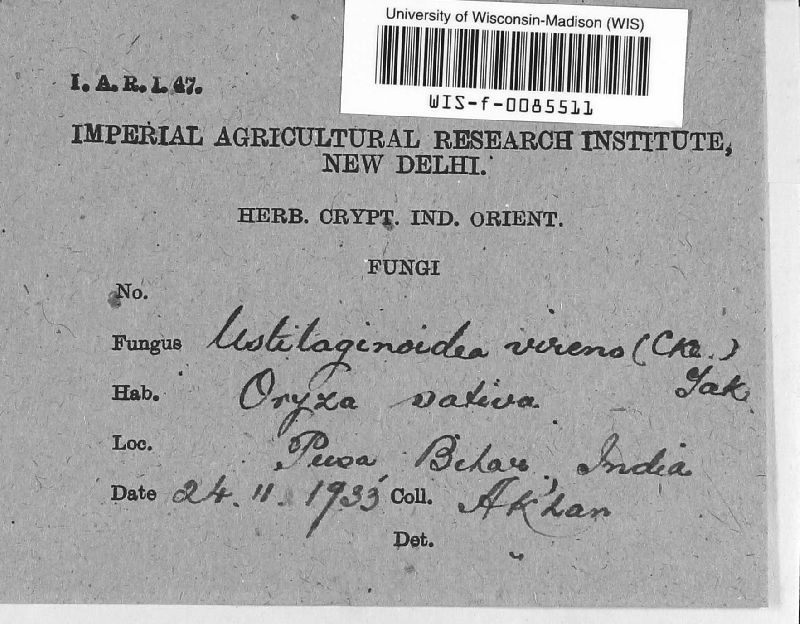 University of Wisconsin-Madison (WIS)
WIS-f-0085511
I. A. R. I. 47.
IMPERIAL AGRICULTURAL RESEARCH INSTITUTE,
NEW DELHI.
HERB. CRYPT. IND. ORIENT.
FUNGI
No.
Fungus Ustilaginoidea virens (Cke.)
Tak.
Hab. Oryza sativa
Loc. Pusa, Behar, India
Date 24.11.1933 Coll. A Khan
Det.